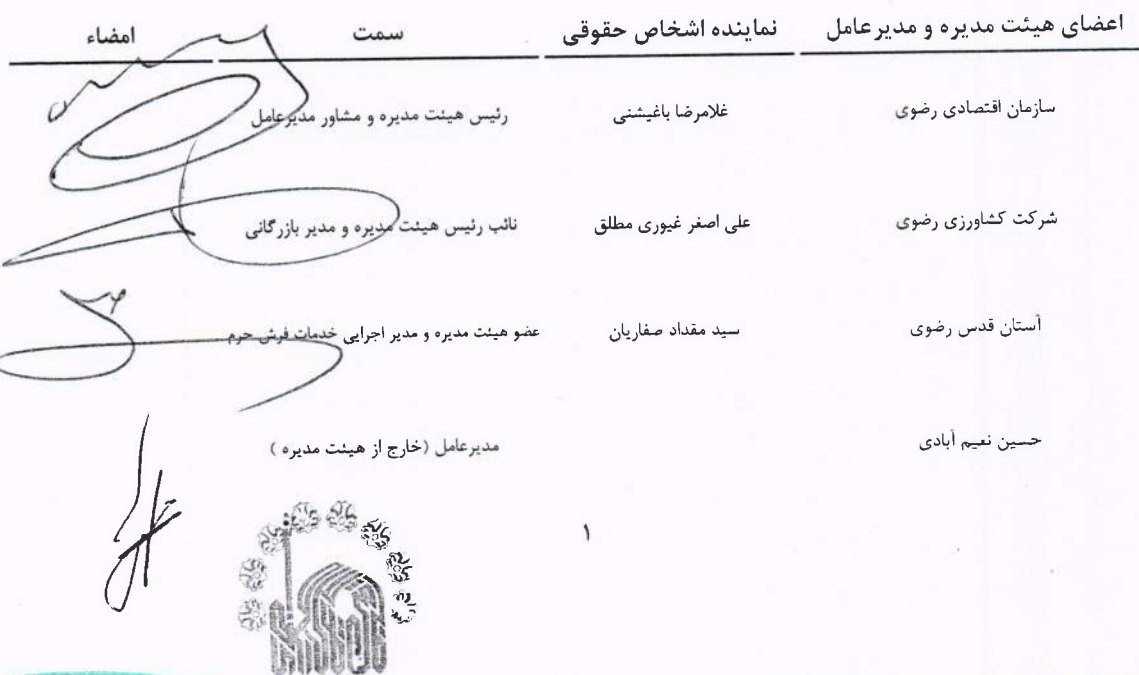 اعضای هیئت مدیره و مدیرعامل نماینده اشخاص حقوقی سمت امضاء
سازمان اقتصادی رضوی غلامرضا باغیشنی رئیس هیئت مدیره و مشاور مدیرعامل
شرکت کشاورزی رضوی علی اصغر غیوری مطلق نائب رئیس هیئت مدیره و مدیر بازرگانی
آستان قدس رضوی سید مقداد صفاریان عضو هیئت مدیره و مدیر اجرایی خدمات فرش حرم
حسین نعیم آبادی مدیرعامل (خارج از هیئت مدیره )
۱